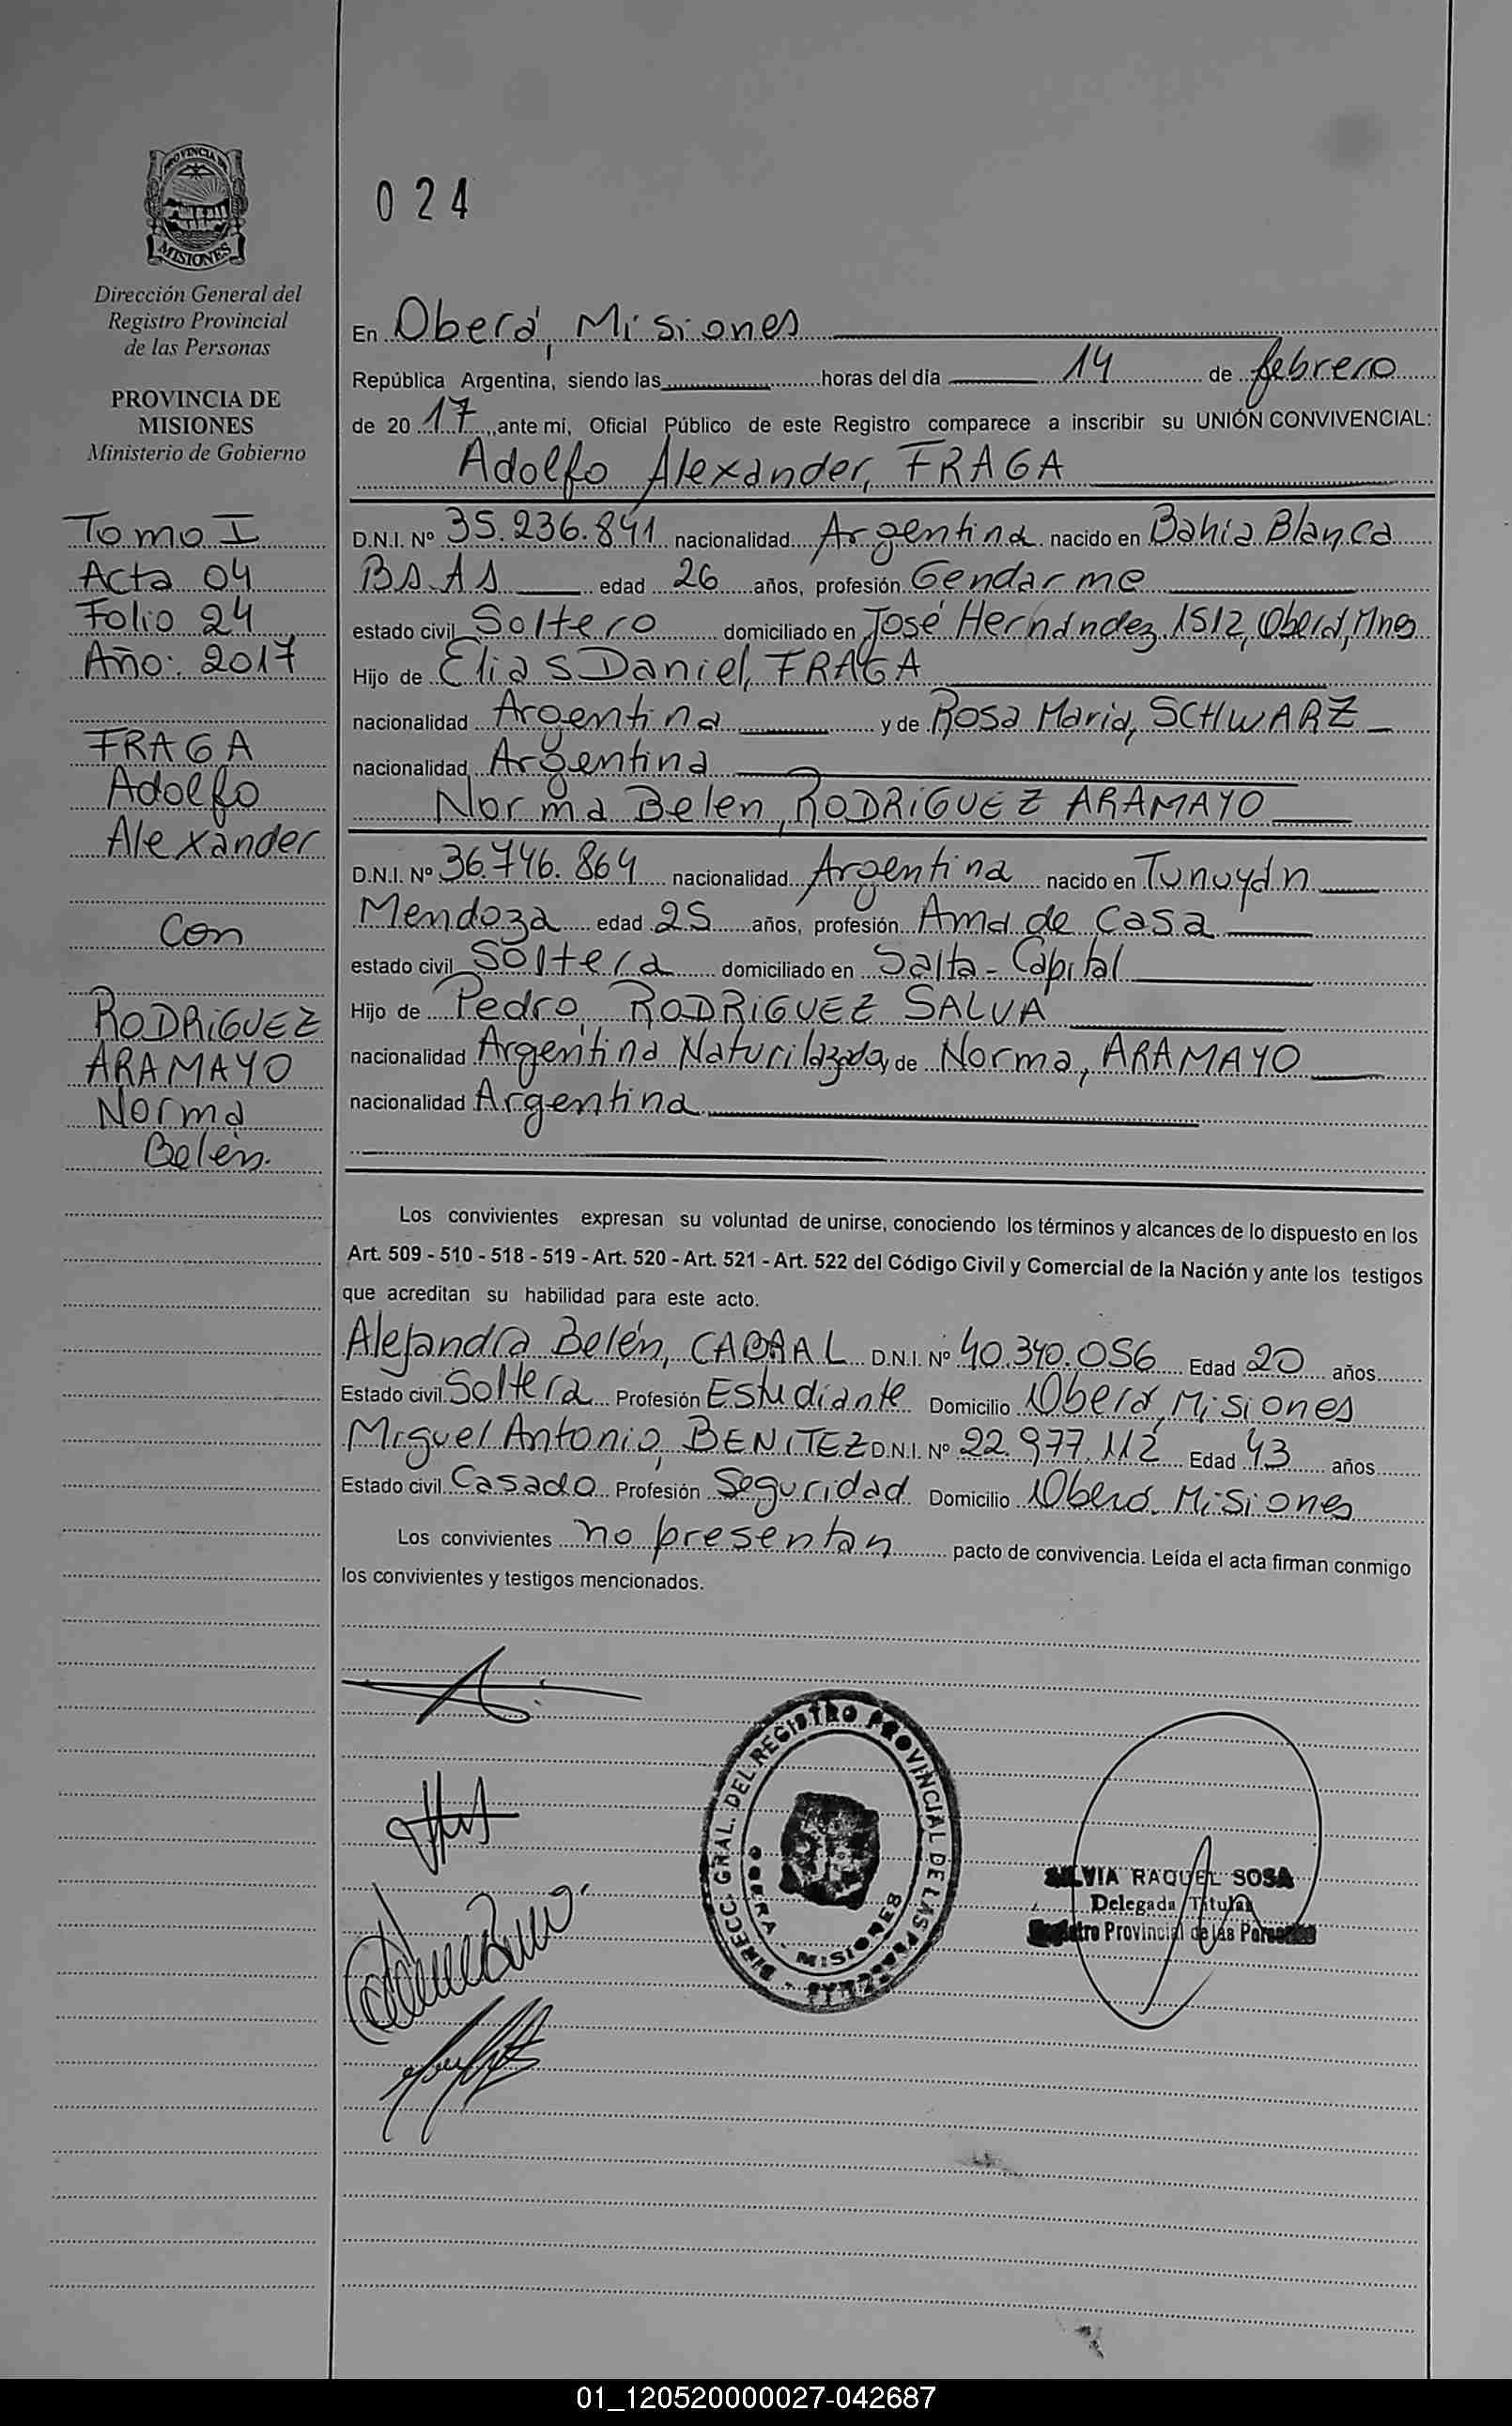 PROVINCIA DE
MISIONES
Dirección General del
Registro Provincial
de las Personas
PROVINCIA DE
MISIONES
Ministerio de Gobierno
Tomo I
Acta 04
Folio 24
Año: 2017
FRAGA
Adolfo
Alexander
Con
RODRIGUEZ
ARAMAYO
Norma
Belén.
024
En Oberá, Misiones
República Argentina, siendo las horas del día 14 de febrero
de 2017, ante mí, Oficial Público de este Registro comparece a inscribir su UNIÓN CONVIVENCIAL:
Adolfo Alexander, FRAGA
D.N.I. Nº 35.236.841 nacionalidad Argentina nacido en Bahía Blanca
BS.AS edad 26 años, profesión Gendarme
estado civil Soltero domiciliado en José Hernández 1512, Oberá, Mnes
Hijo de Elias Daniel, FRAGA
nacionalidad Argentina y de Rosa Maria, SCHWARZ
nacionalidad Argentina
Norma Belen, RODRIGUEZ ARAMAYO
D.N.I. Nº 36.746.864 nacionalidad Argentina nacido en Tunuyán
Mendoza edad 25 años, profesión Ama de Casa
estado civil Soltera domiciliado en Salta - Capital
Hijo de Pedro, RODRIGUEZ SALVA
nacionalidad Argentina Naturilazada y de Norma, ARAMAYO
nacionalidad Argentina
Los convivientes expresan su voluntad de unirse, conociendo los términos y alcances de lo dispuesto en los
Art. 509 - 510 - 518 - 519 - Art. 520 - Art. 521 - Art. 522 del Código Civil y Comercial de la Nación y ante los testigos
que acreditan su habilidad para este acto.
Alejandra Belén, CABRAL D.N.I. Nº 40.340.056 Edad 20 años
Estado civil Soltera Profesión Estudiante Domicilio Oberá, Misiones
Miguel Antonio, BENITEZ D.N.I. Nº 22.977.112 Edad 43 años
Estado civil Casado Profesión Seguridad Domicilio Oberá, Misiones
Los convivientes no presentan pacto de convivencia. Leída el acta firman conmigo
los convivientes y testigos mencionados.
DIRECC. GRAL. DEL REGISTRO PROVINCIAL DE LAS PERSONAS
OBERA - MISIONES
SILVIA RAQUEL SOSA
Delegada Titular
Registro Provincial de las Personas
01_120520000027-042687